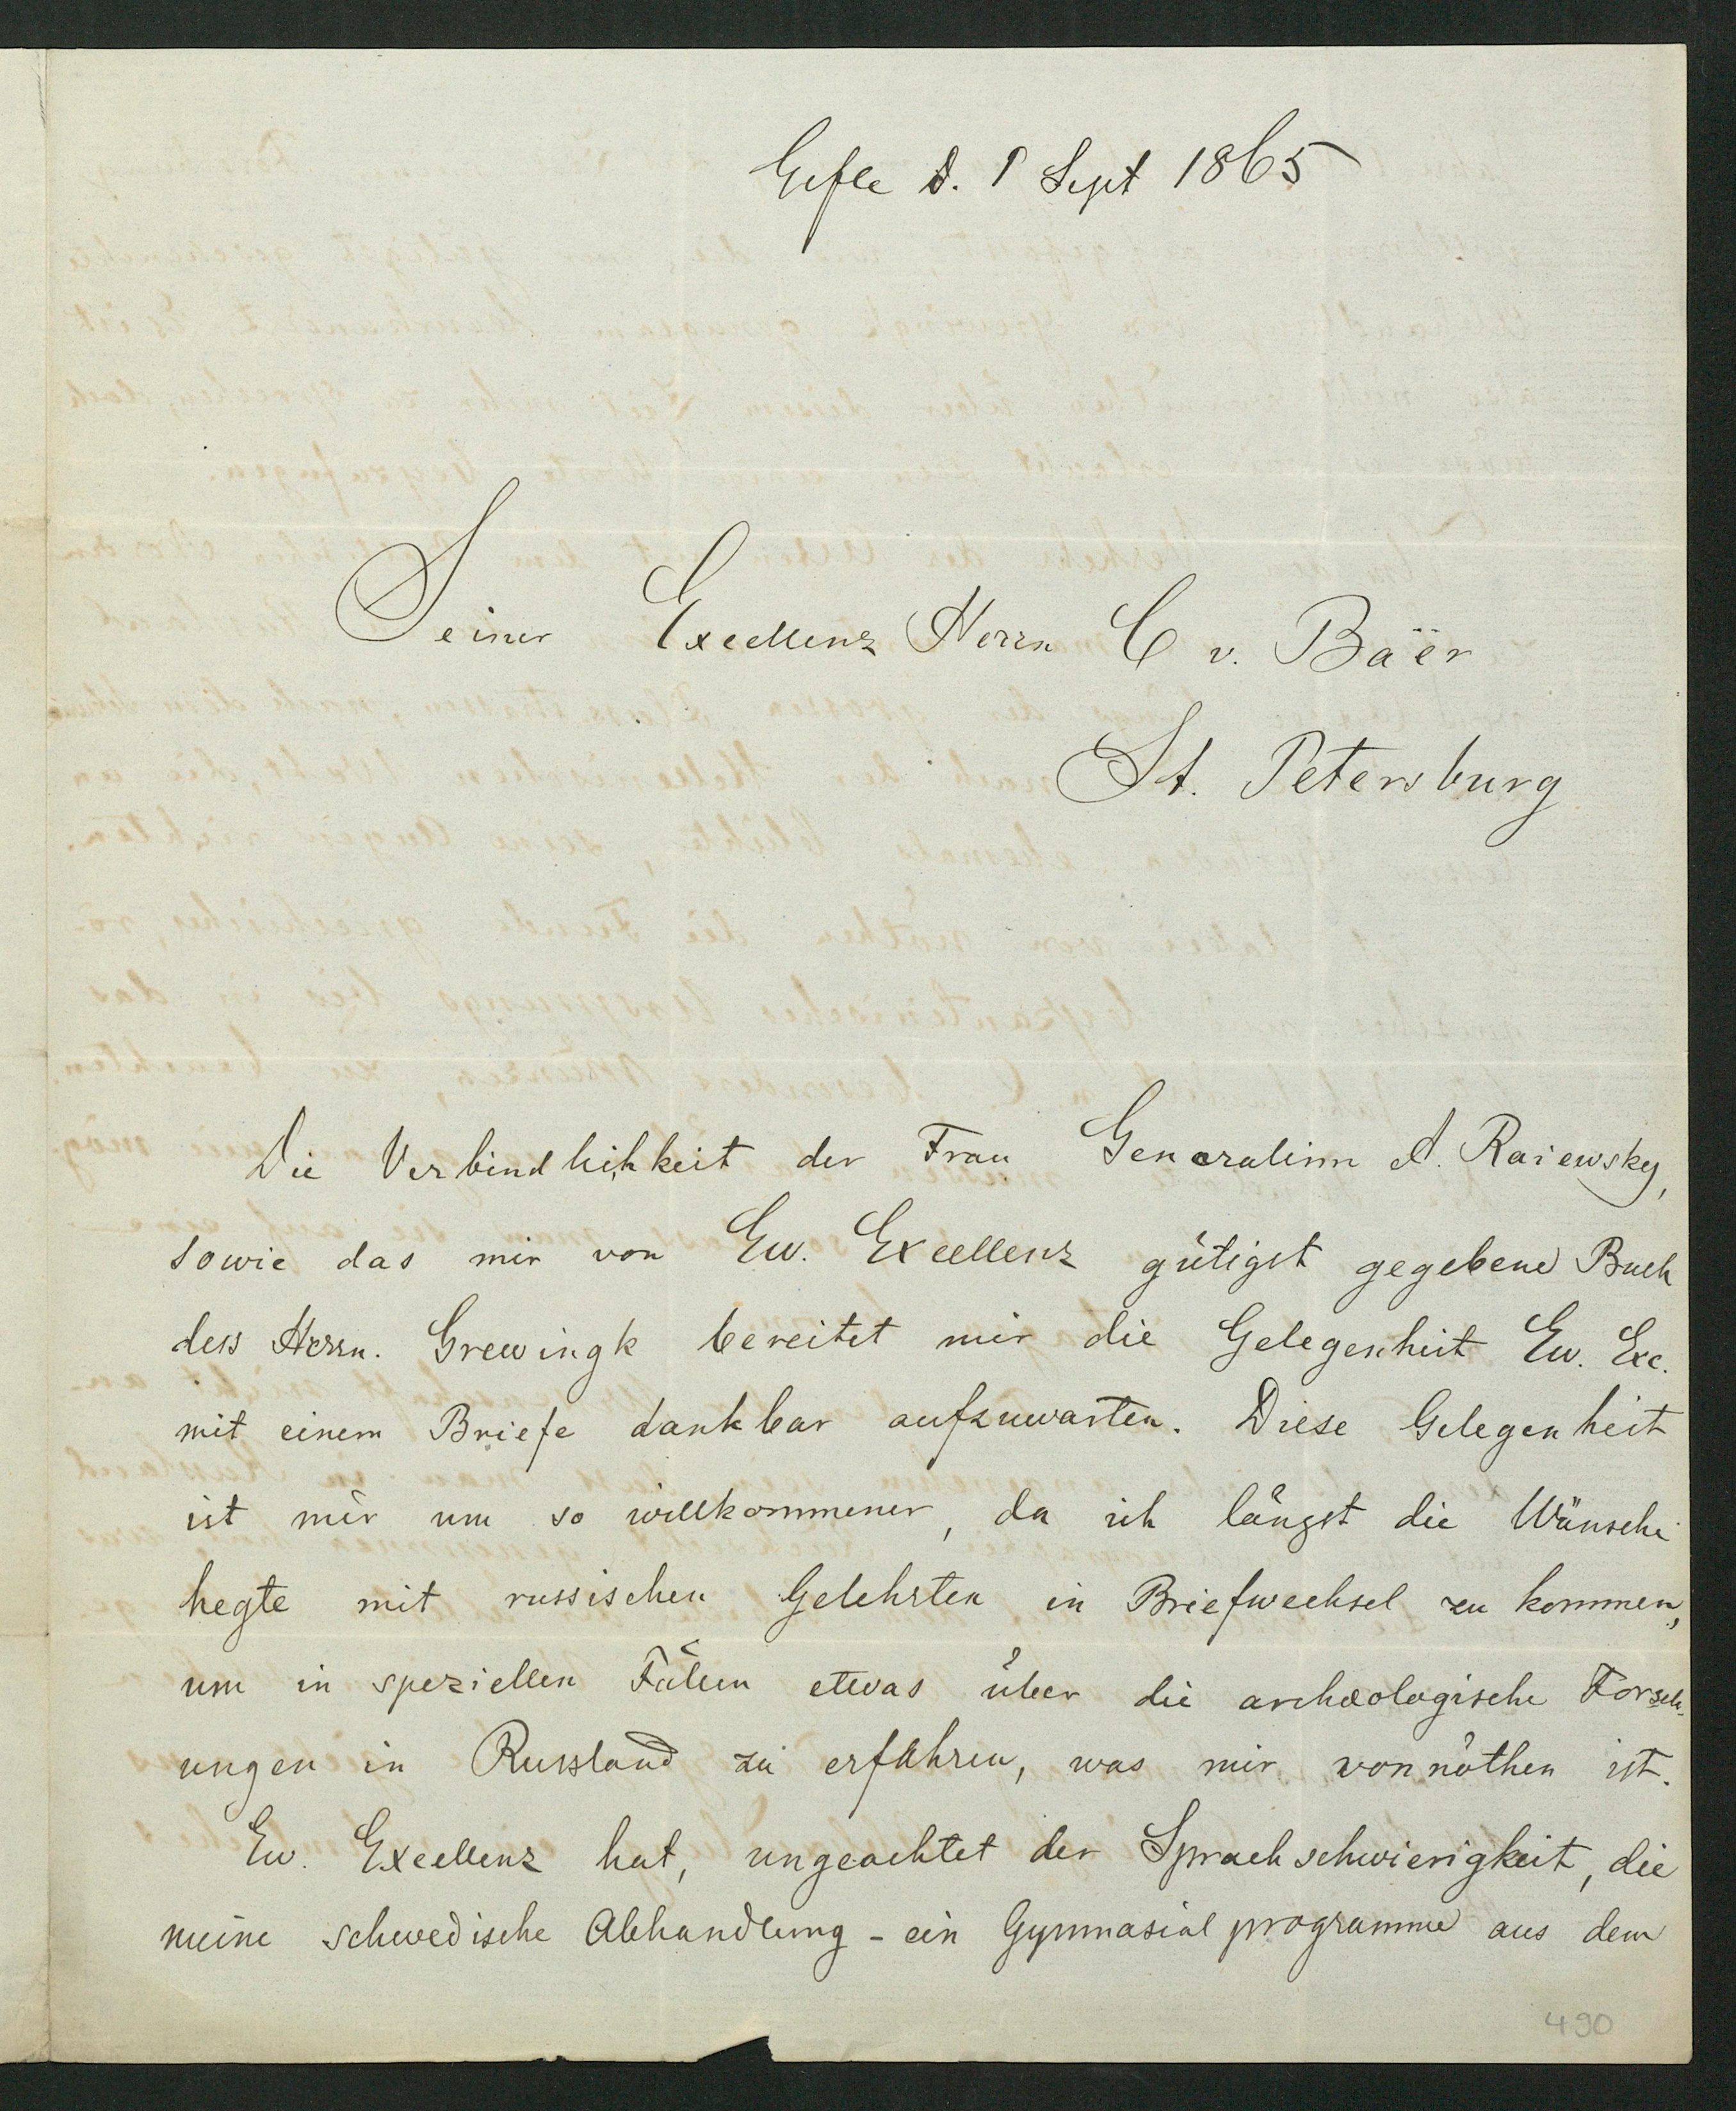 Gefle d. 1 Sept 1865
Seiner Excellenz Herrn C v. Baër
St. Petersburg
Die Verbindlichkeit der Frau Generalinn A. Raiewsky,
sowie das mir von Ew. Excellenz gütigst gegebene Buch
dess Herrn. Grewingk bereitet mir die Gelegenheit Ew. Exc.
mit einem Briefe dankbar aufzuwarten. Diese Gelegenheit
ist mir um so willkommener, da ich längst die Wünsche
hegte mit russischen Gelehrten in Briefwechsel zu kommen,
um in speziellen Fällen etwas über die archæologische Forsch-
ungen in Russland zu erfahren, was mir vonnöthen ist.
Ew. Excellenz hat, ungeachtet der Sprachschwierigkeit, die
meine schwedische Abhandlung - ein Gymnasialprogramme aus dem
490